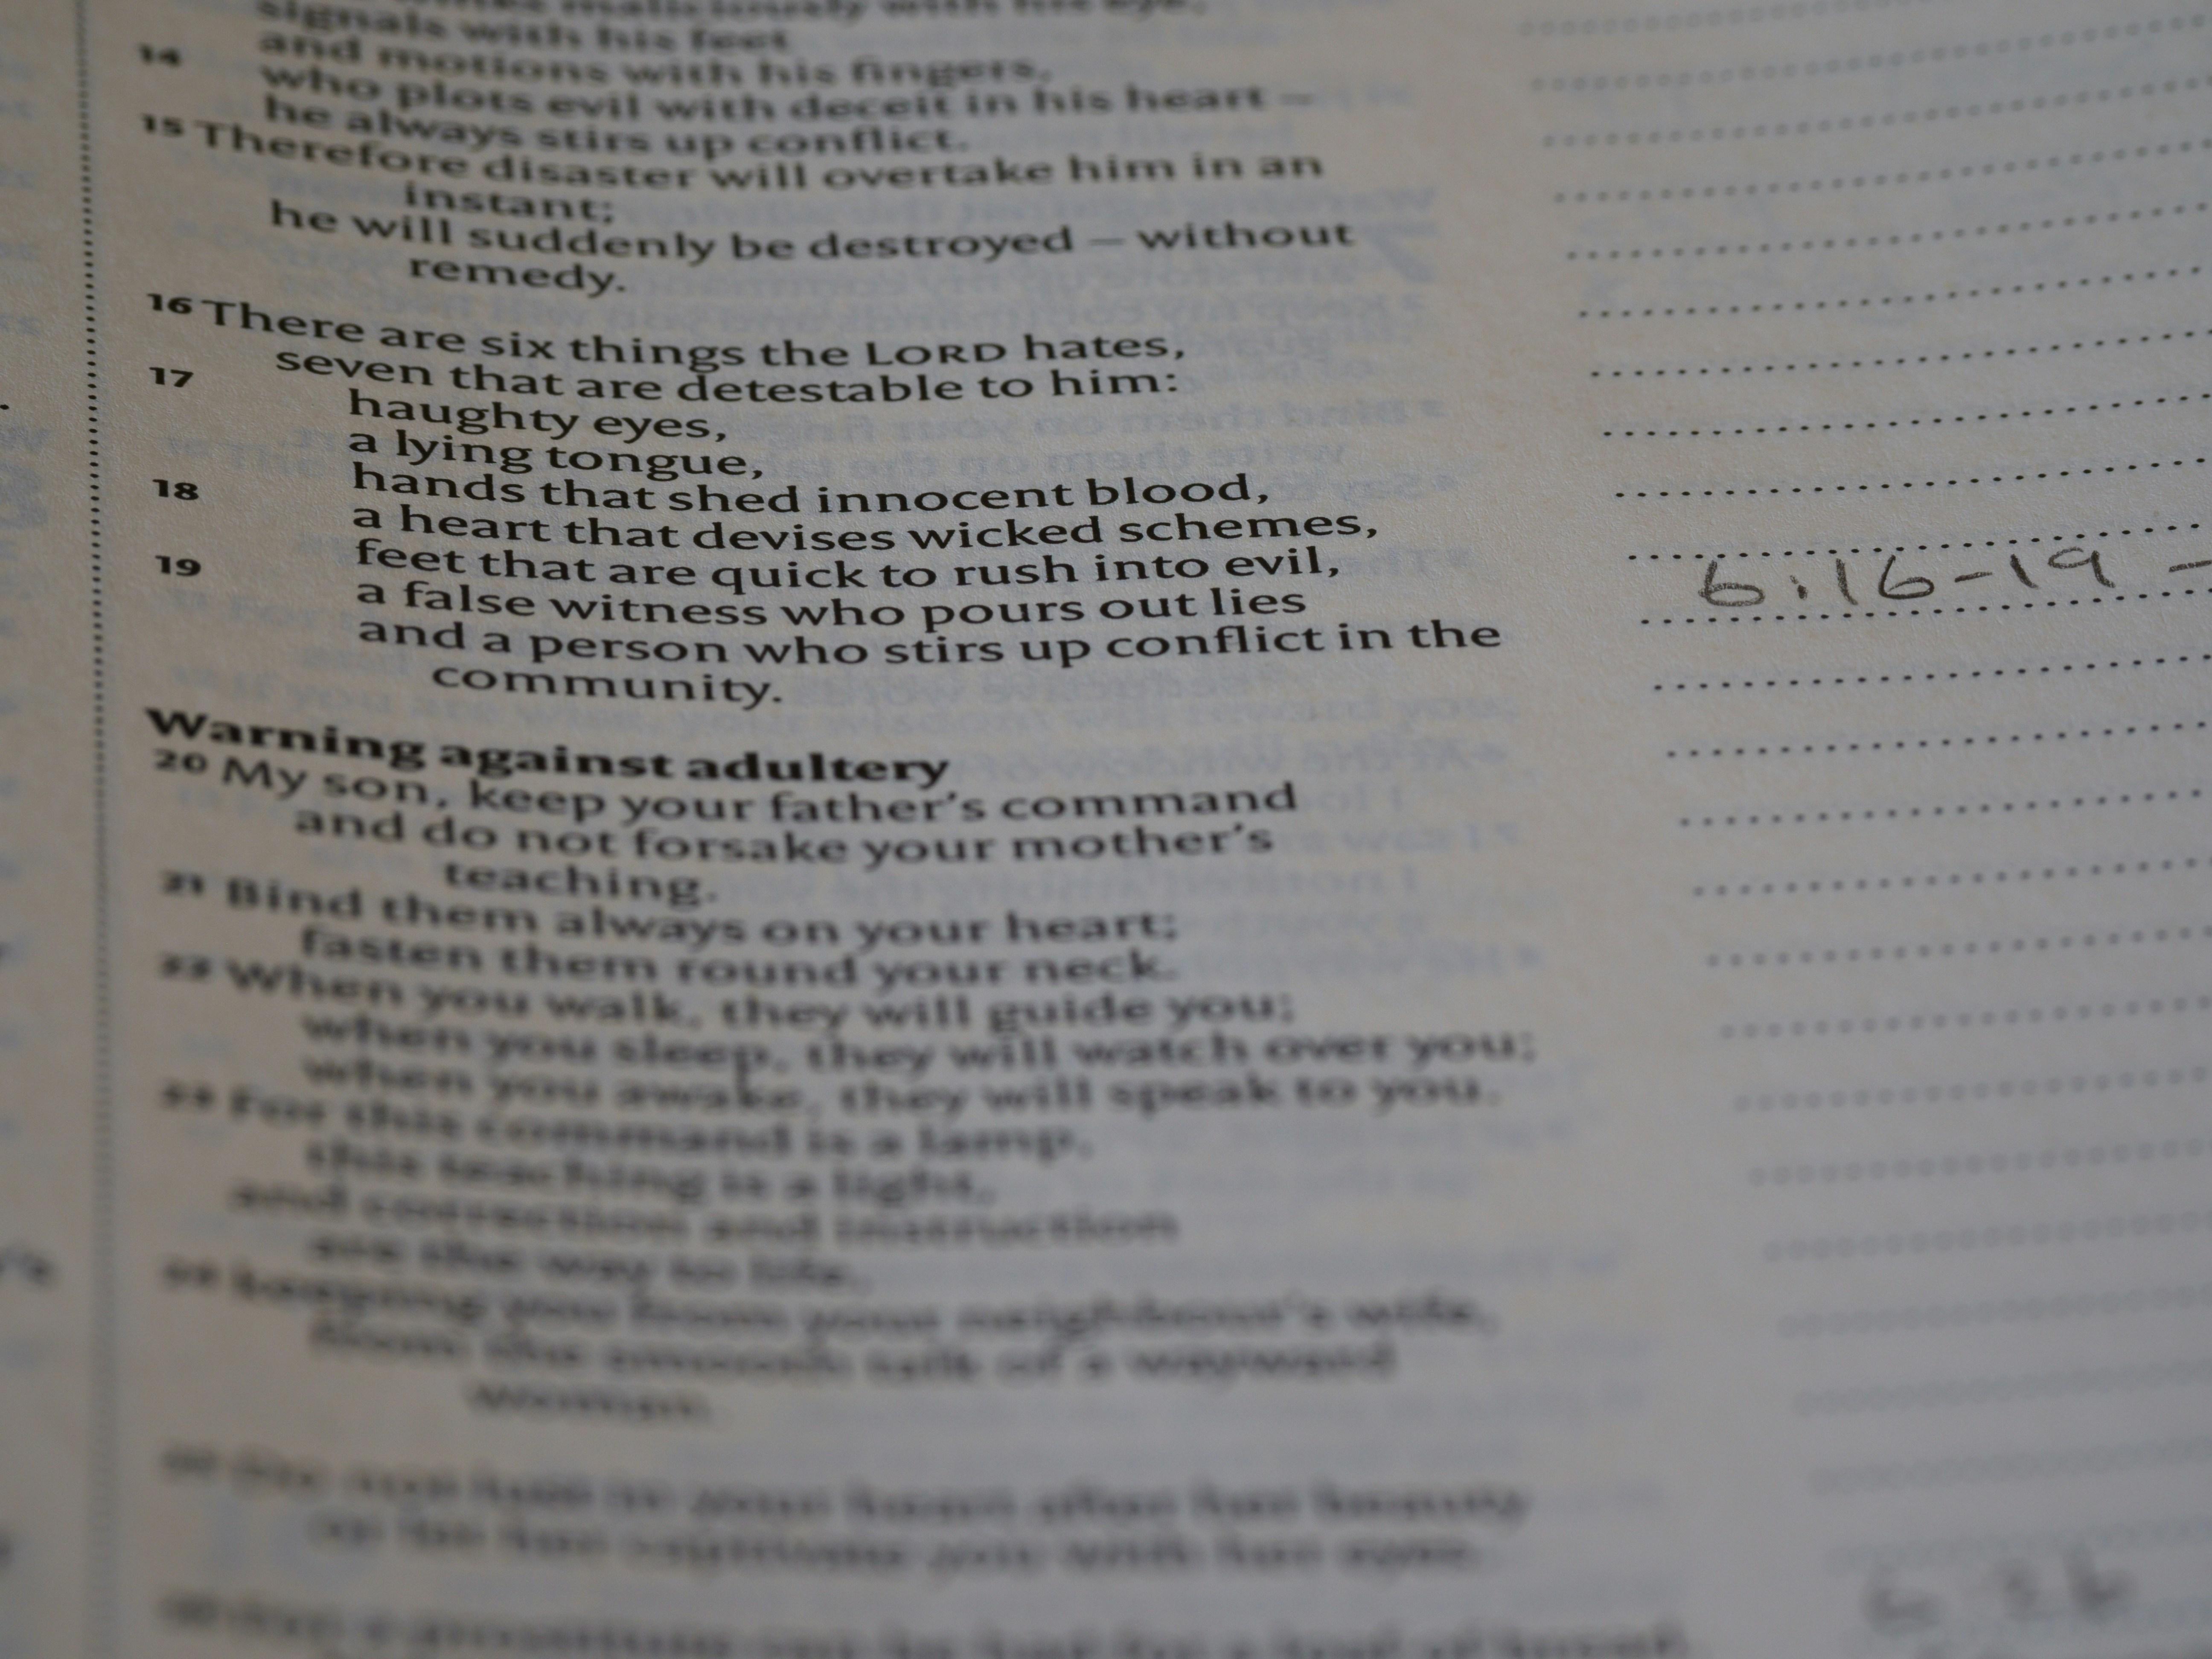 maliciously with his eye,
signals with his feet
14 and motions with his fingers,
who plots evil with deceit in his heart –
he always stirs up conflict.
15 Therefore disaster will overtake him in an
instant;
he will suddenly be destroyed – without
remedy.
16 There are six things the LORD hates,
seven that are detestable to him:
17 haughty eyes,
a lying tongue,
hands that shed innocent blood,
18 a heart that devises wicked schemes,
feet that are quick to rush into evil,
19 a false witness who pours out lies
and a person who stirs up conflict in the
community.
6:16-19 -
Warning against adultery
20 My son, keep your father's command
and do not forsake your mother's
teaching.
21 Bind them always on your heart;
fasten them round your neck.
22 When you walk, they will guide you;
when you sleep, they will watch over you;
when you awake, they will speak to you.
23 For this command is a lamp,
this teaching is a light,
and correction and instruction
are the way to life,
24 keeping you from your neighbour's wife,
from the smooth talk of a wayward
woman.